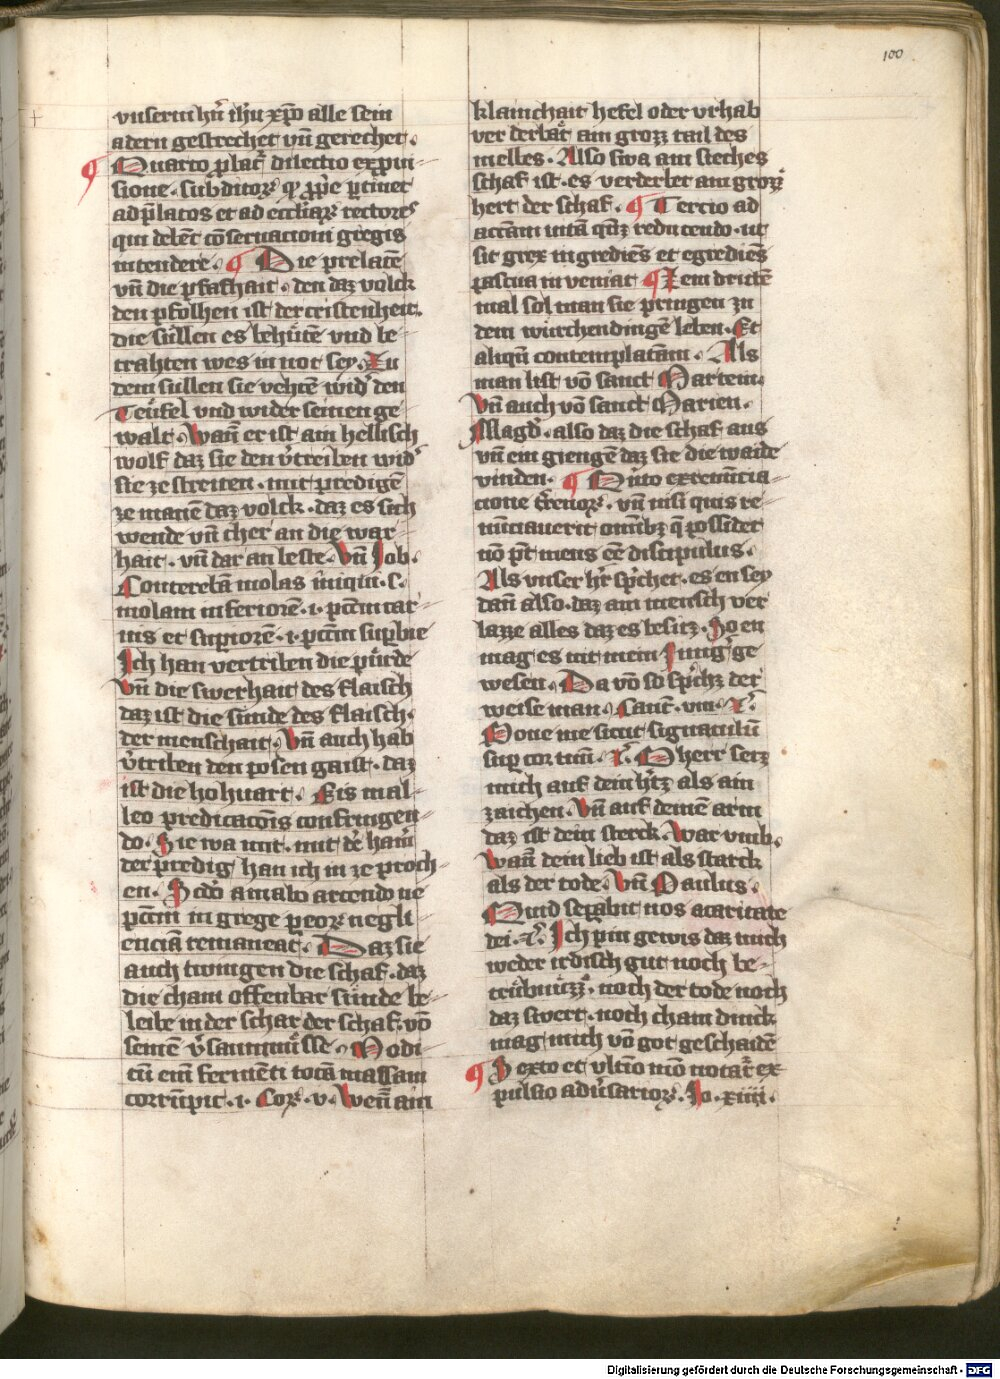 100
vnserm hr̄n ih̄u xp̄o alle sein
adern gestrechet vnd gerechet.
¶ Quarto placꝛ dilectio expvi-
sione. subditoꝝ qꝫ ꝓpͥe ꝑtinet
ad p̄latos et ad eccl̄iaꝝ rectores
qui debēt cōseruacioni gregis
intendere. ¶ Die prelatē
vn̄ die pfafhait. den daz volck
den pfolhen ist der cristenheit.
die sullen es behüetē vnd be-
trahten wes in not sey. Zu
dem sullen sie vehtē widͬ den
Teufel vnd wider seinen ge-
walt. Wan̄ er ist ain hellisch
wolf daz sie den v̓treiben widͬ
sie ze streiten. mit predigē
ze manē daz volck. daz es sich
wende vn̄ cher an die war-
hait. vn̄ dar an leste. Vn̄ Job.
Conterebā molas iniqui. s.
molam inferiorē. i. pctm̄ car-
nis et supiorē. i. pctm̄ supbie
Ich han vertriben die pürde
vn̄ die swerhait des flaisch
daz ist die sunde des flaisch.
der menschait. Vn̄ auch hab
v̓triben den posen gaist. daz
ist die hohuart. Eis mal-
leo predicacōis confringen-
do. Sie wa mit. mit dē ham̄
der predig han ich in ze proch-
en. Scd̄o amabo arcendo ne
pctm̄ in grege peoꝝ negli-
enciā remaneat. Daz sie
auch twingen die schaf. daz
die chain offenbar sünde be-
leibe in der schar der schaf. vō
seinē v̓saumnüsse. Modi-
cū enī fermēti totā massam
corrūpit. i. Coꝝ. v. Wen̄ ain
klainchait hefel oder vrhab
verderbāt ain grozz tail des
melles. Also swa ain steches
schaf ist. es verderbet ain grozz
hert der schaf. ¶ Tercio ad
actiuam vitā qͣꝫ reducendo. ut
sit grex ingrediēs et egrediēs
pascua inveniat ¶ Zem drittē
mal sol man sie pringen zu
dem würchendingē leben. Et
aliqn̄ contemplatam. Als
man list vō sanct Martein.
Vn̄ auch vō sanct Marien.
Magd̄. also daz die schaf aus
vn̄ ein giengē daz sie die waide
vinden. ¶ Qͥnto ex renūcia-
cione t̄renoꝝ. vn̄ nisi quis re-
nūciauerit om̄ibꝫ q̄ possidet
nō pt̄ meus eē discipulus.
Als vnser hͬr spͥchet. es en sey
dan̄ also. daz ain mensch ver
lazze alles daz es besitz. So en
mag es nit mein Jungͬ ge-
wesen. Da vō so spͥchz der
weise man. Cant̄. viii. ⁊c̄.
Pone me sicut signaculū
sup cor tuū. ⁊c̄. O herr setz
mich auf dein h̓tz als ain
zaichen. Vn̄ auf deinē arm
daz ist dein sterck. War vmb.
Wan̄ dein lieb ist als starck
als der tode. Vn̄ Paulus.
Quid sepabit nos a caritate
dei. ⁊c̄. Ich pin gewis daz mich
weder irdisch gut noch be-
trübnüzzͤ. noch der tode noch
daz swert. noch chain dinck
mag mich vō got geschaidē
¶ Sexto et vltīo mō notat̄ ex-
pulsio adu̓sarioꝝ. Jo. xiiii.
Digitalisierung gefördert durch die Deutsche Forschungsgemeinschaft - DFG